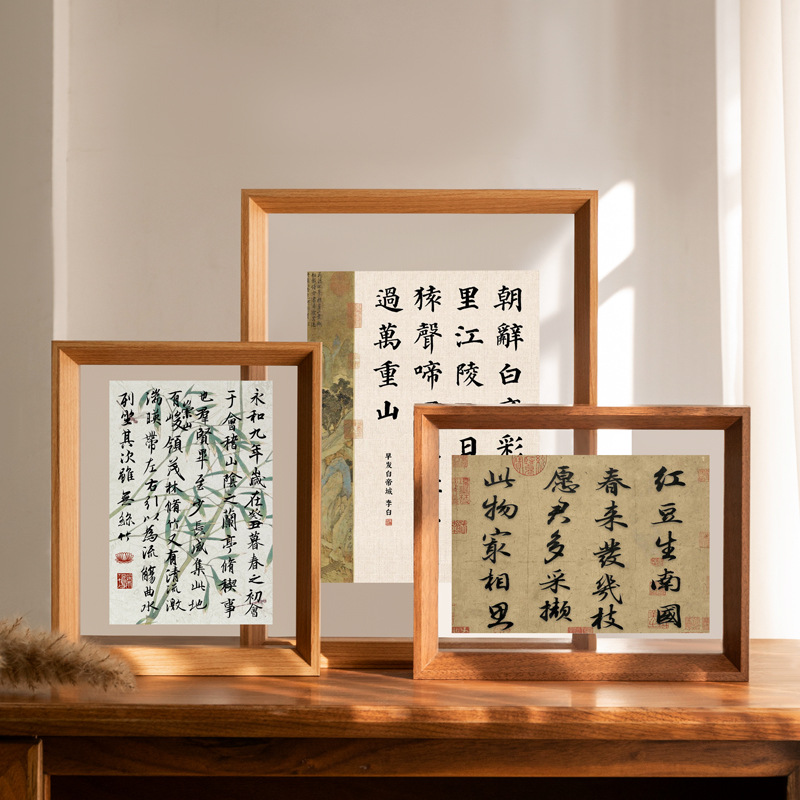 永和九年歲在癸丑暮春之初會
于會稽山陰之蘭亭脩稧事
也群賢畢至少長咸集此地
有崇山峻領茂林脩竹又有清流激
湍暎帶左右引以為流觴曲水
列坐其次雖無絲竹
朝辭白彩
里江陵日
猿聲啼
過萬重山
早发白帝城 李白
红豆生南國
春来發幾枝
愿君多采撷
此物最相思